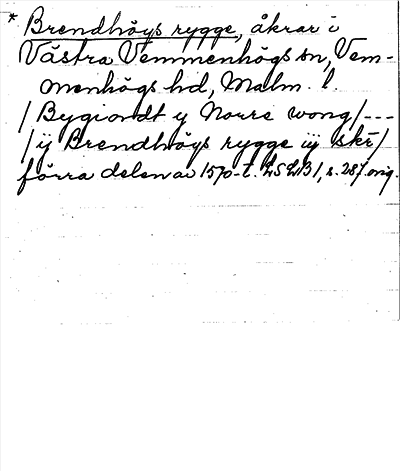 * Brendhöys rygge, åkrar i
Västra Vemmenhögs sn, Vem-
menhögs hd, Malm. l.
/ Bygiondt y Norre wong / ---
/ ÿ Brendhöys rygge iij skr̄ /
förra delen av 1570-t. LSLB1, s. 287. orig.